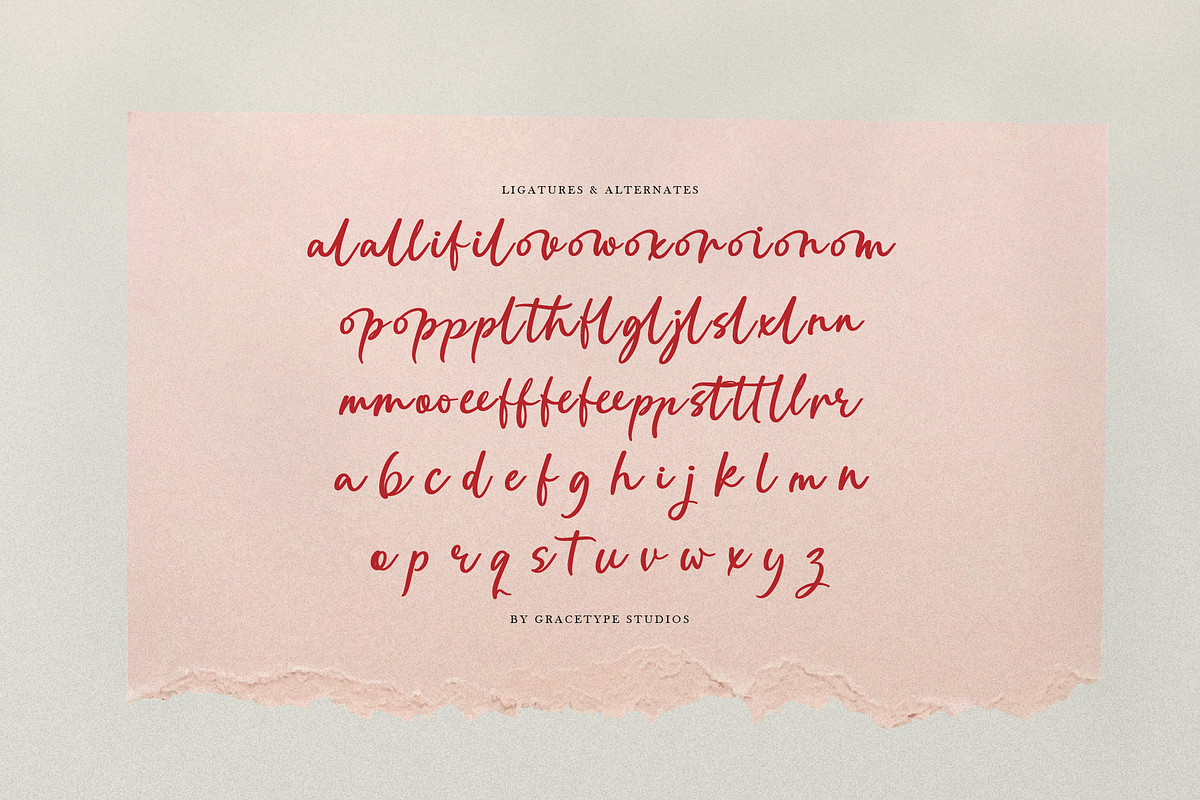 LIGATURES & ALTERNATES
alallifilovowoxoroionom
opoppplthflgljlslxlnn
mmooeefffefeeppstttllrr
a b c d e f g h i j k l m n
o p r q s t u v w x y z
BY GRACETYPE STUDIOS